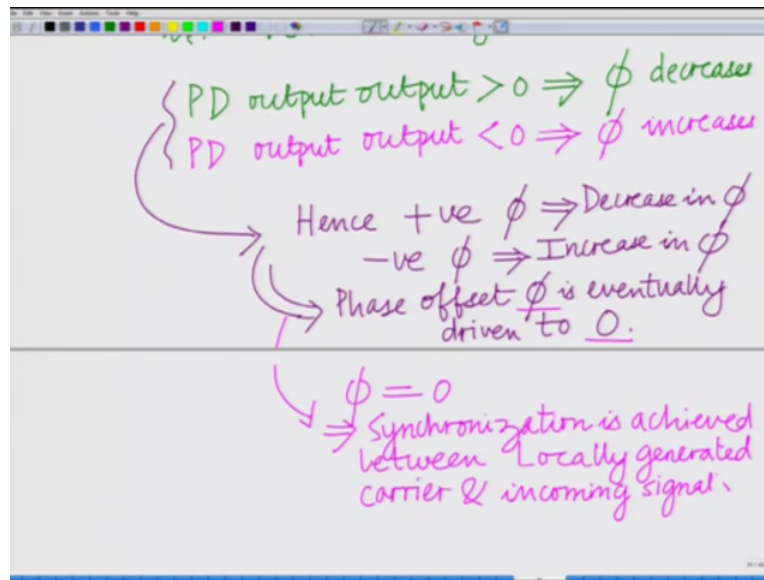 PD output output > 0 ⇒ ϕ decreases
PD output output < 0 ⇒ ϕ increases
Hence +ve ϕ ⇒ Decrease in ϕ
-ve ϕ ⇒ Increase in ϕ
Phase offset ϕ is eventually
driven to 0.
ϕ = 0
⇒ Synchronization is achieved
between Locally generated
carrier & incoming signal.